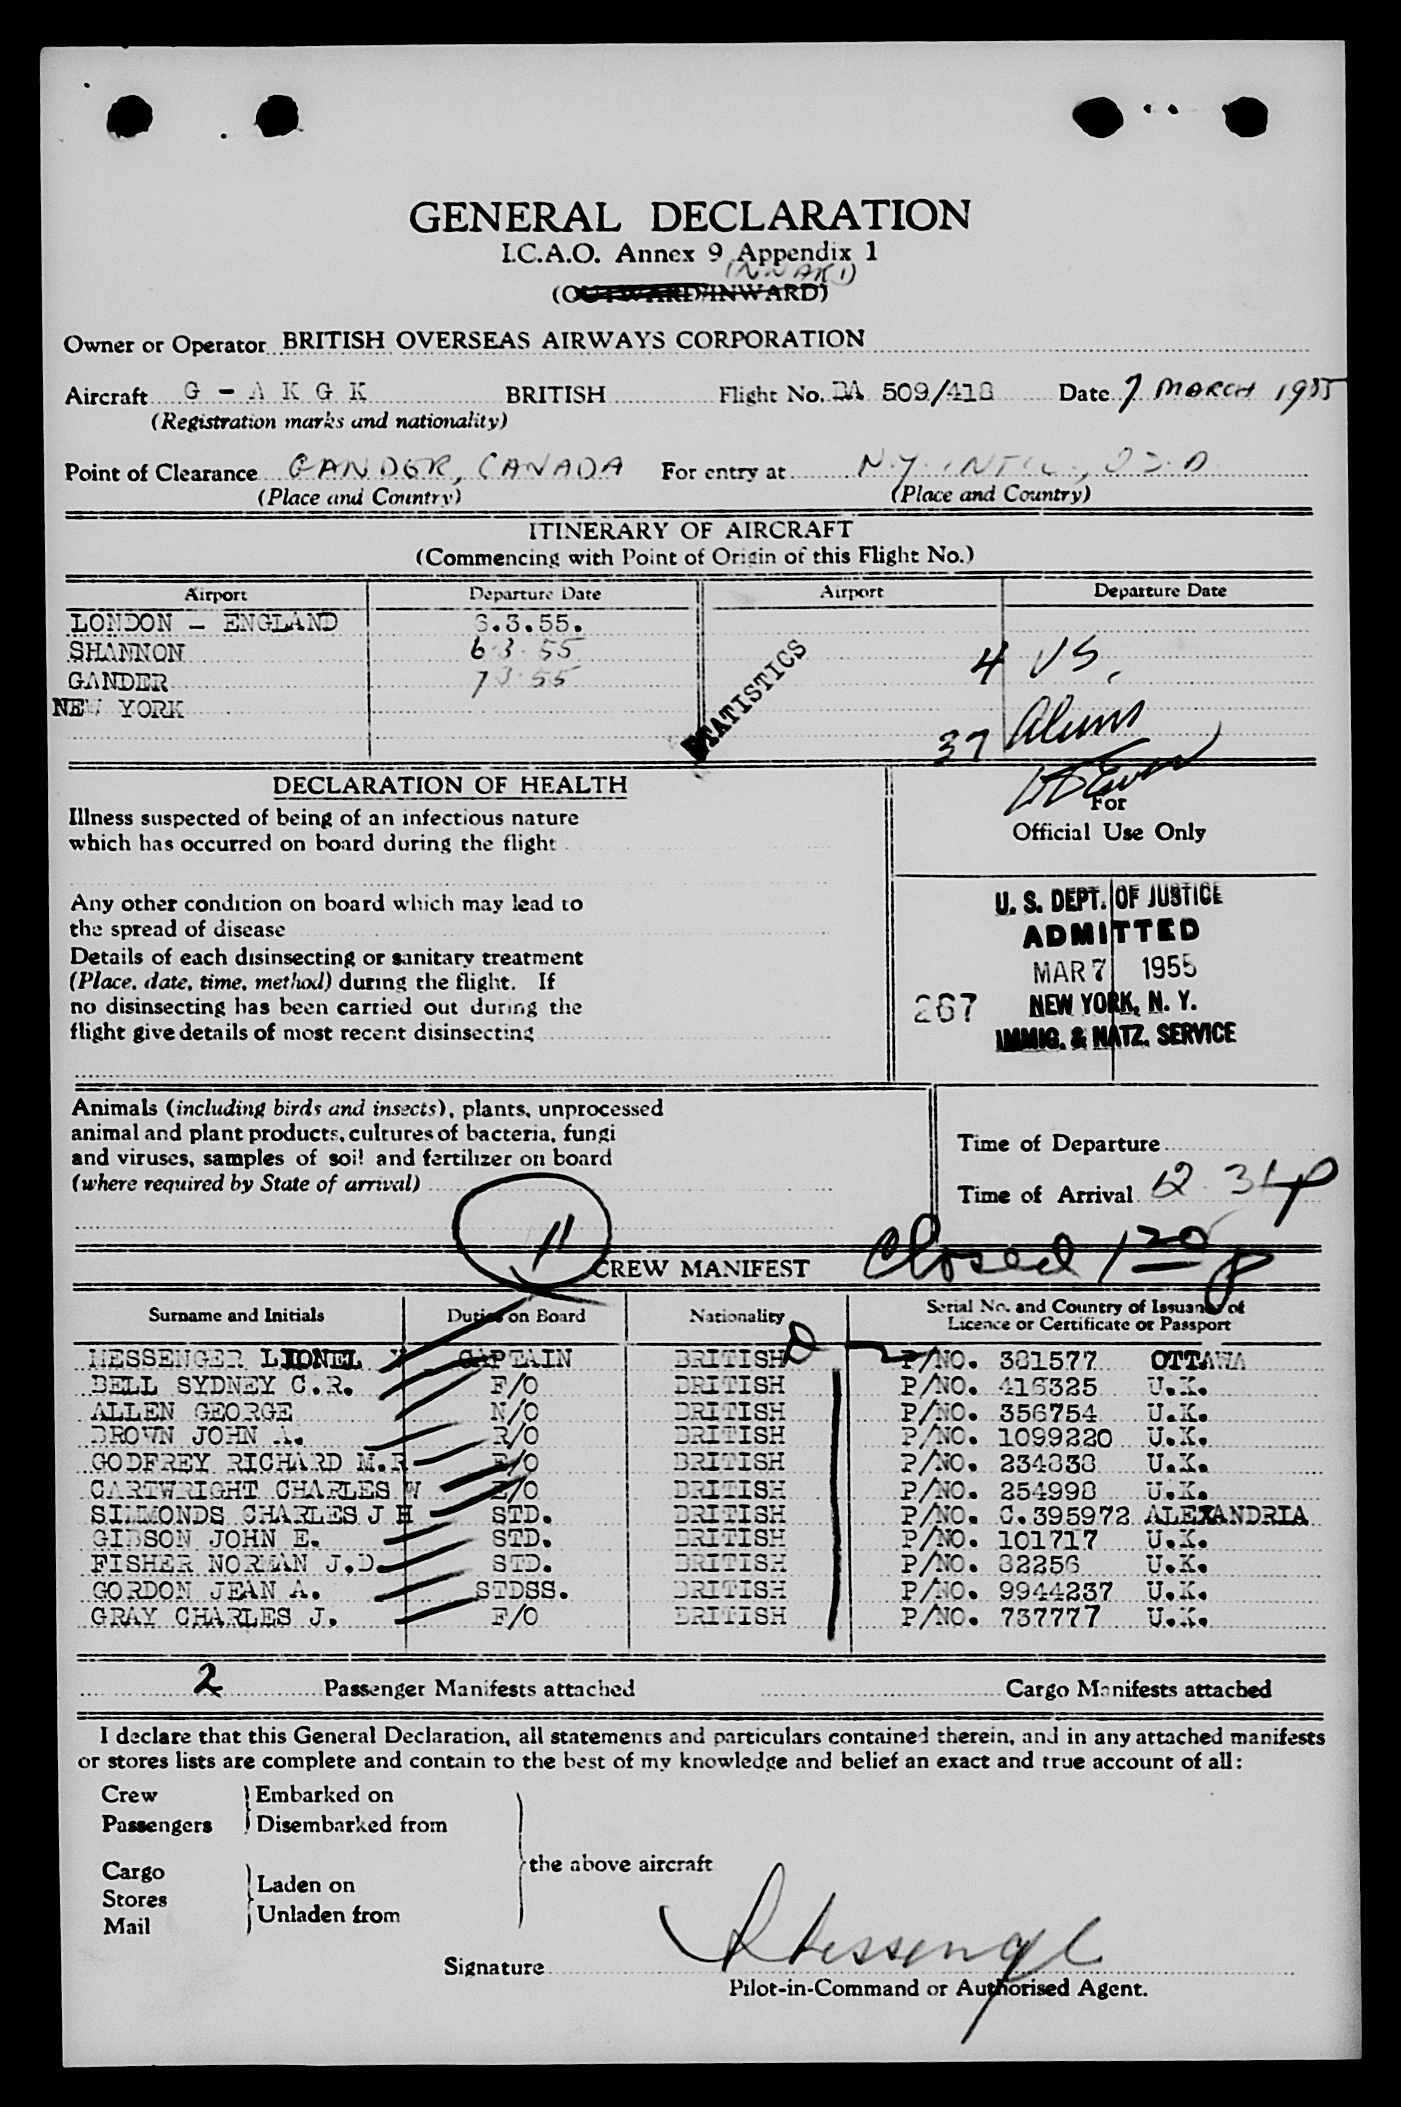 GENERAL DECLARATION
I.C.A.O. Annex 9 Appendix 1
(INWARD)
(OUTWARD/INWARD)
Owner or Operator BRITISH OVERSEAS AIRWAYS CORPORATION
Aircraft G - A K G K BRITISH Flight No. BA 509/418 Date 7 MARCH 1955
(Registration marks and nationality)
Point of Clearance GANDER, CANADA For entry at N.Y. INTL.,
(Place and Country) (Place and Country)
ITINERARY OF AIRCRAFT
(Commencing with Point of Origin of this Flight No.)
Airport Departure Date Airport Departure Date
LONDON - ENGLAND 6.3.55.
SHANNON 6 3 55
GANDER 7 3 55
NEW YORK
STATISTICS
4 US.
37 Aliens
DECLARATION OF HEALTH
Illness suspected of being of an infectious nature
which has occurred on board during the flight
For
Official Use Only
Any other condition on board which may lead to
the spread of disease
Details of each disinsecting or sanitary treatment
(Place, date, time, method) during the flight. If
no disinsecting has been carried out during the
flight give details of most recent disinsecting
U. S. DEPT. OF JUSTICE
ADMITTED
MAR 7 1955
267 NEW YORK, N. Y.
IMMIG. & NATZ. SERVICE
Animals (including birds and insects), plants, unprocessed
animal and plant products, cultures of bacteria, fungi
and viruses, samples of soil and fertilizer on board
(where required by State of arrival)
Time of Departure
Time of Arrival 12 31p
11
CREW MANIFEST Closed 1 20 p
Surname and Initials Duties on Board Nationality Serial No. and Country of Issuance of
Licence or Certificate or Passport
MESSENGER LIONEL V CAPTAIN BRITISH P/NO. 381577 OTTAWA
BELL SYDNEY C.R. F/O BRITISH P/NO. 416325 U.K.
ALLEN GEORGE N/O BRITISH P/NO. 356754 U.K.
BROWN JOHN A. R/O BRITISH P/NO. 1099220 U.K.
GODFREY RICHARD M.R E/O BRITISH P/NO. 234838 U.K.
CARTWRIGHT CHARLES W E/O BRITISH P/NO. 254998 U.K.
SIMMONDS CHARLES J H STD. BRITISH P/NO. C.395972 ALEXANDRIA
GIBSON JOHN E. STD. BRITISH P/NO. 101717 U.K.
FISHER NORMAN J.D. STD. BRITISH P/NO. 82256 U.K.
GORDON JEAN A. STDSS. BRITISH P/NO. 9944237 U.K.
GRAY CHARLES J. F/O BRITISH P/NO. 737777 U.K.
2 Passenger Manifests attached Cargo Manifests attached
I declare that this General Declaration, all statements and particulars contained therein, and in any attached manifests
or stores lists are complete and contain to the best of my knowledge and belief an exact and true account of all:
Crew Embarked on
Passengers Disembarked from
the above aircraft
Cargo
Laden on
Stores
Unladen from
Mail
Signature L Messenger
Pilot-in-Command or Authorised Agent.